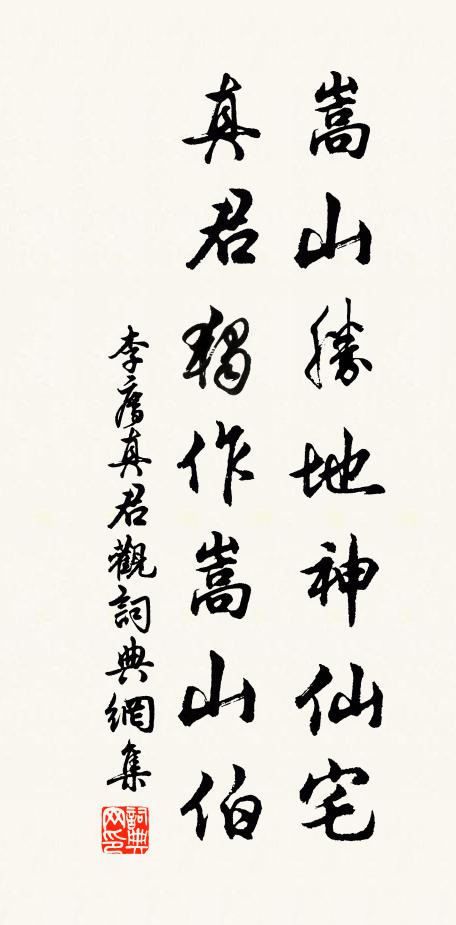 嵩山勝地神仙宅
真君獨作嵩山伯
李廌真君觀詞典網集
詞典网印